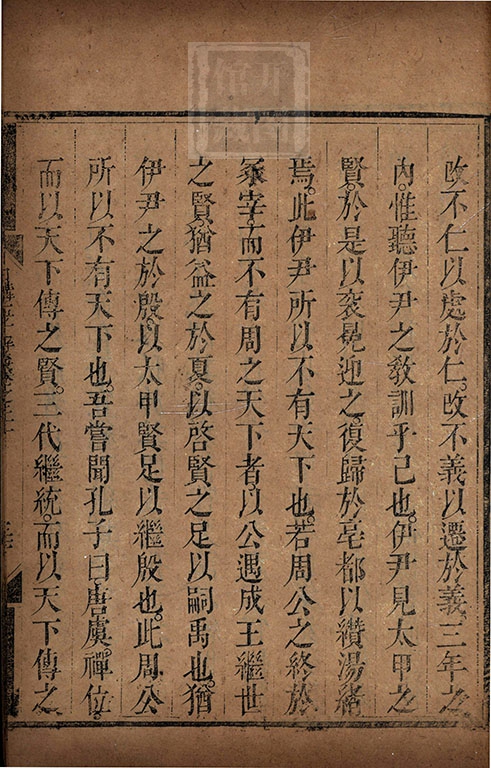 改不仁以處於仁。改不義以遷於義。三年之
內。惟聽伊尹之敎訓乎己也。伊尹見太甲之
賢。於是以袞冕迎之。復歸於亳都以纘湯緖
焉。此伊尹所以不有天下也。若周公之終於
冢宰而不有周之天下者以公遇成王繼世
之賢。猶益之於夏。以啓賢之足以嗣禹也。猶
伊尹之於殷。以太甲賢足以繼殷也。此周公
所以不有天下也。吾嘗聞孔子曰唐虞禪位。
而以天下傳之賢。三代繼統。而以天下傳之